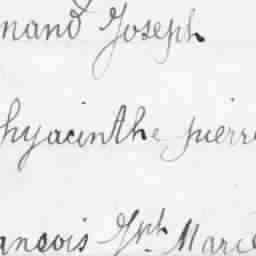 nand Joseph
hyacinthe pierre
ancois Jph. Marie